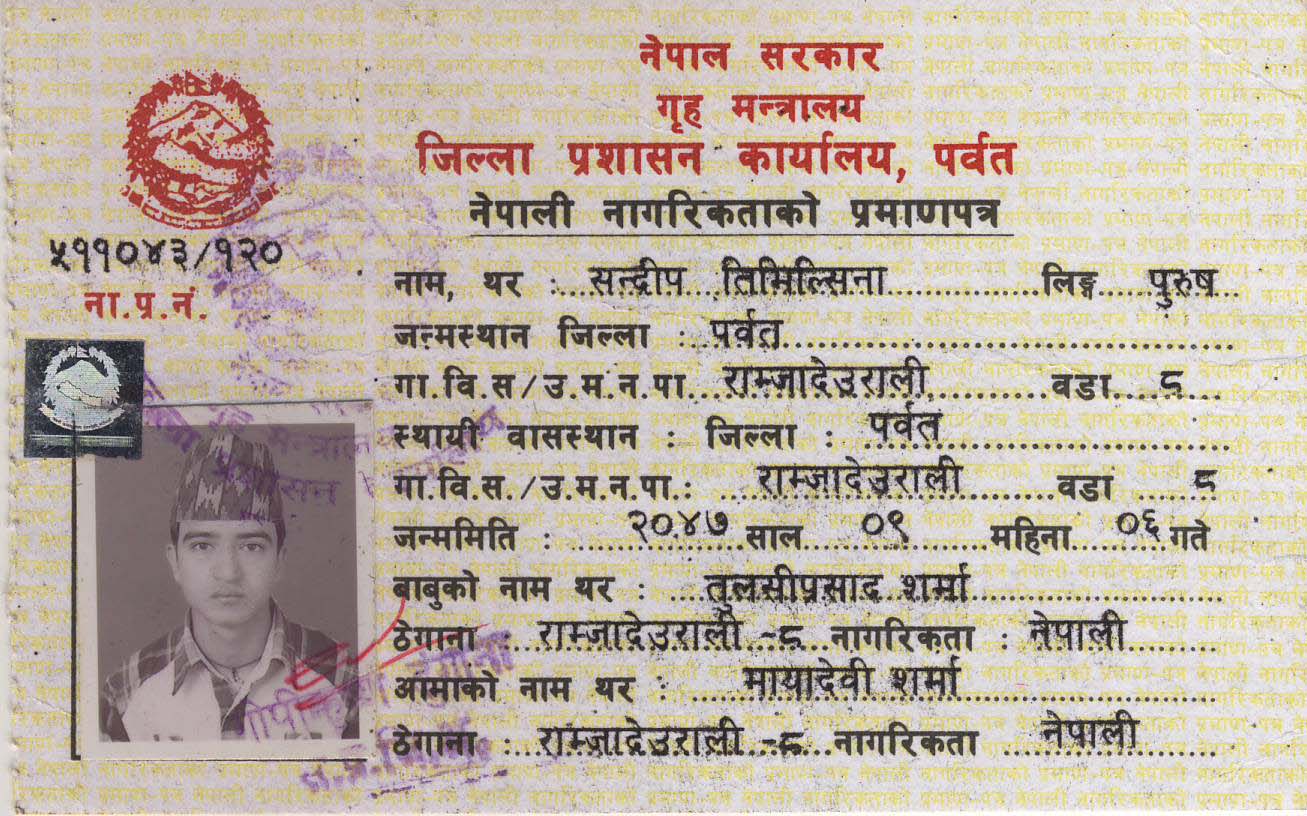 नेपाल सरकार
गृह मन्त्रालय
जिल्ला प्रशासन कार्यालय, पर्वत
नेपाली नागरिकताको प्रमाणपत्र
५११०४३/१२०
ना.प्र.नं.
नाम, थर : सन्दीप तिमिल्सिना लिङ्ग पुरुष
जन्मस्थान जिल्ला : पर्वत
गा.वि.स/उ.म.न.पा. राम्जादेउराली वडा ८
स्थायी वासस्थान : जिल्ला : पर्वत
गा.वि.स./उ.म.न.पा.: राम्जादेउराली वडा ८
जन्ममिति : २०४७ साल ०९ महिना ०६ गते
बाबुको नाम थर : तुलसीप्रसाद शर्मा
ठेगाना : राम्जादेउराली -८ नागरिकता : नेपाली
आमाको नाम थर : मायादेवी शर्मा
ठेगाना : राम्जादेउराली -८ नागरिकता नेपाली